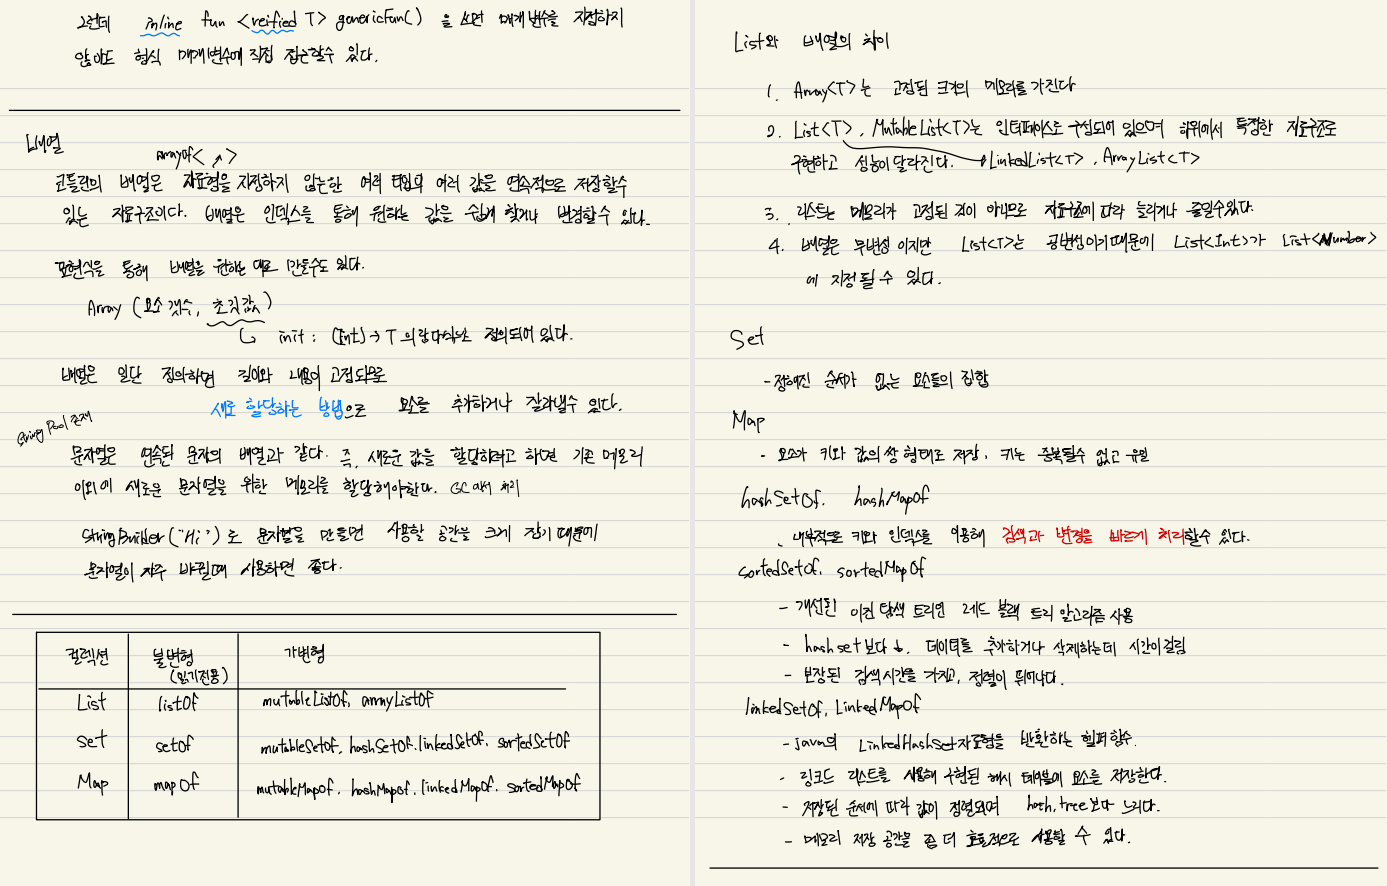 그런데 inline fun <reified T> genericFun() 을 쓰면 매개변수를 지정하지
않아도 형식 매개변수에 직접 접근할수 있다.
배열
arrayOf< >
코틀린의 배열은 자료형을 지정하지 않는한 여러 타입의 여러 값을 연속적으로 저장할수
있는 자료구조이다. 배열은 인덱스를 통해 원하는 값을 쉽게 찾거나 변경할수 있다.
표현식을 통해 배열을 원하는 대로 만들수도 있다.
Array (요소 갯수, 초깃값)
init : (Int) → T 의 람다식으로 정의되어 있다.
배열은 일단 정의하면 길이와 내용이 고정되므로
새로 할당하는 방법으로 요소를 추가하거나 잘라낼수 있다.
String Pool 존재
문자열은 연속된 문자의 배열과 같다. 즉, 새로운 값을 할당하려고 하면 기존 메모리
이외에 새로운 문자열을 위한 메모리를 할당해야한다. GC에서 처리
StringBuilder("Hi") 로 문자열을 만들면 사용할 공간을 크게 잡기 때문에
문자열이 자주 바뀔때 사용하면 좋다.
컬렉션 불변형 (읽기전용) 가변형
List listOf mutableListOf, arrayListOf
Set setOf mutableSetOf, hashSetOf, linkedSetOf, sortedSetOf
Map mapOf mutableMapOf, hashMapOf, linkedMapOf, sortedMapOf
List와 배열의 차이
1. Array<T>는 고정된 크기의 메모리를 가진다
2. List<T>, MutableList<T>는 인터페이스로 구성되어 있으며 하위에서 특정한 자료구조로
구현하고 성능이 달라진다. LinkedList<T>, ArrayList<T>
3. 리스트는 메모리가 고정된 것이 아니므로 자료구조에 따라 늘리거나 줄일수있다.
4. 배열은 무변성 이지만 List<T>는 공변성이기때문에 List<Int>가 List<Number>
에 지정될 수 있다.
Set
- 정해진 순서가 없는 요소들의 집합
Map
- 요소가 키와 값의 쌍 형태로 저장, 키는 중복될수 없고 유일
hashSetOf, hashMapOf
- 내부적으로 키와 인덱스를 이용해 검색과 변경을 빠르게 처리할수 있다.
sortedSetOf, sortedMapOf
- 개선된 이진 탐색 트리인 레드 블랙 트리 알고리즘 사용
- hashset보다 ↓, 데이터를 추가하거나 삭제하는데 시간이걸림
- 보장된 검색시간을 가지고, 정렬이 뛰어나다.
linkedSetOf, LinkedMapOf
- java의 LinkedHashSet자료형을 반환하는 헬퍼함수.
- 링크드 리스트를 사용해 구현된 해시 테이블에 요소를 저장한다.
- 저장된 순서에 따라 값이 정렬되며 hash, tree보다 느리다.
- 메모리 저장 공간을 좀 더 효율적으로 사용할 수 있다.